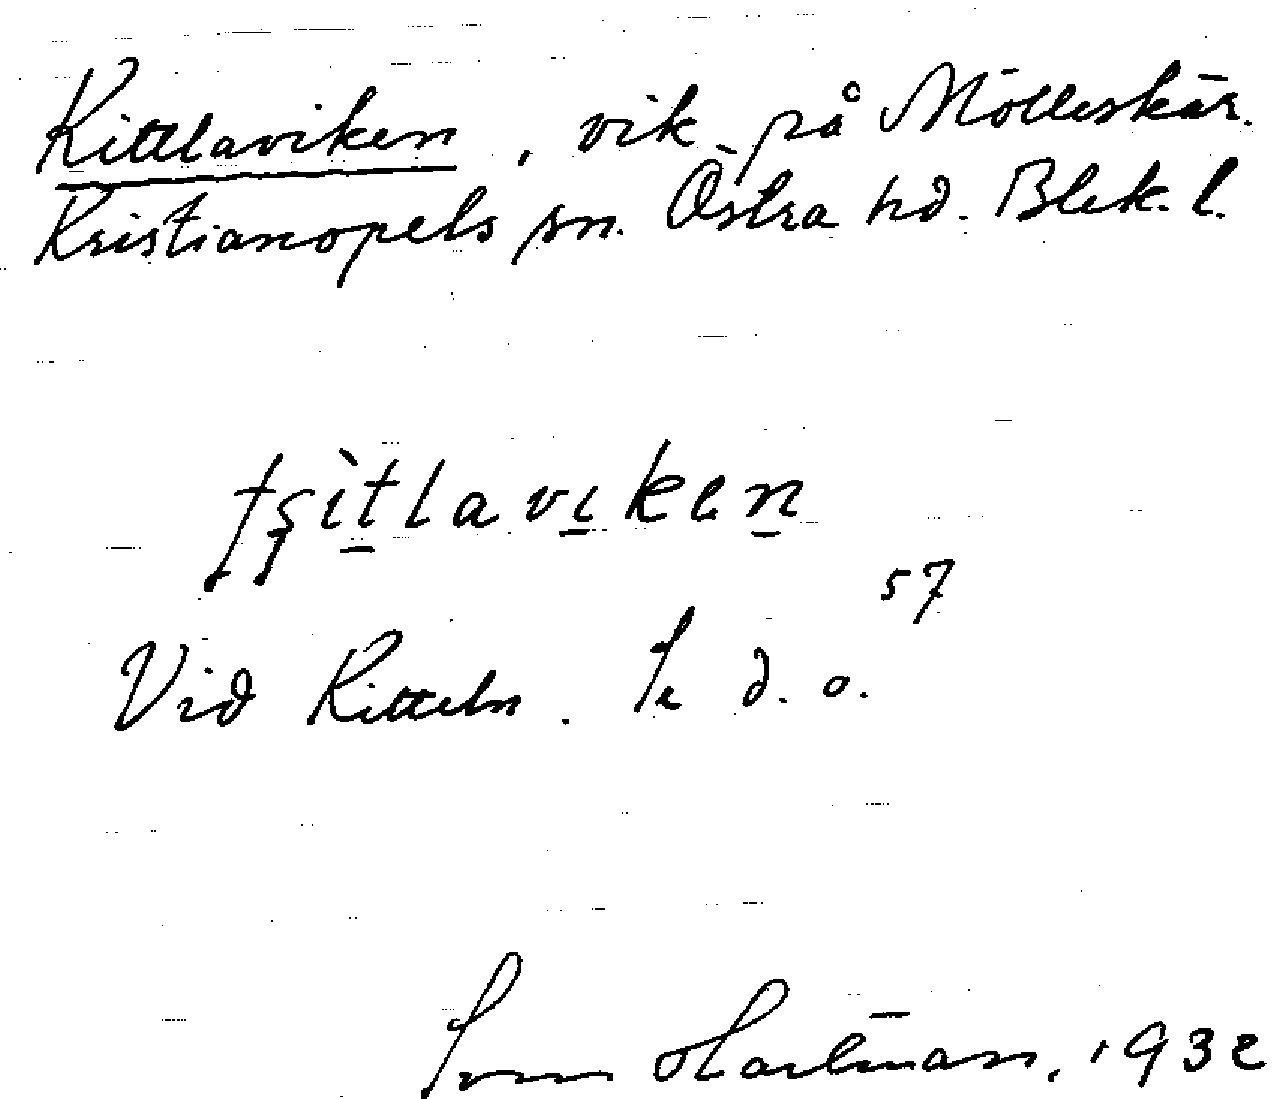 Kittlaviken, vik på Mölleskär.
Kristianopels sn. Östra hd. Blek. l.
tşìtlavıken
57
Vid Kitteln. Se d. o.
Sven Hartman, 1932